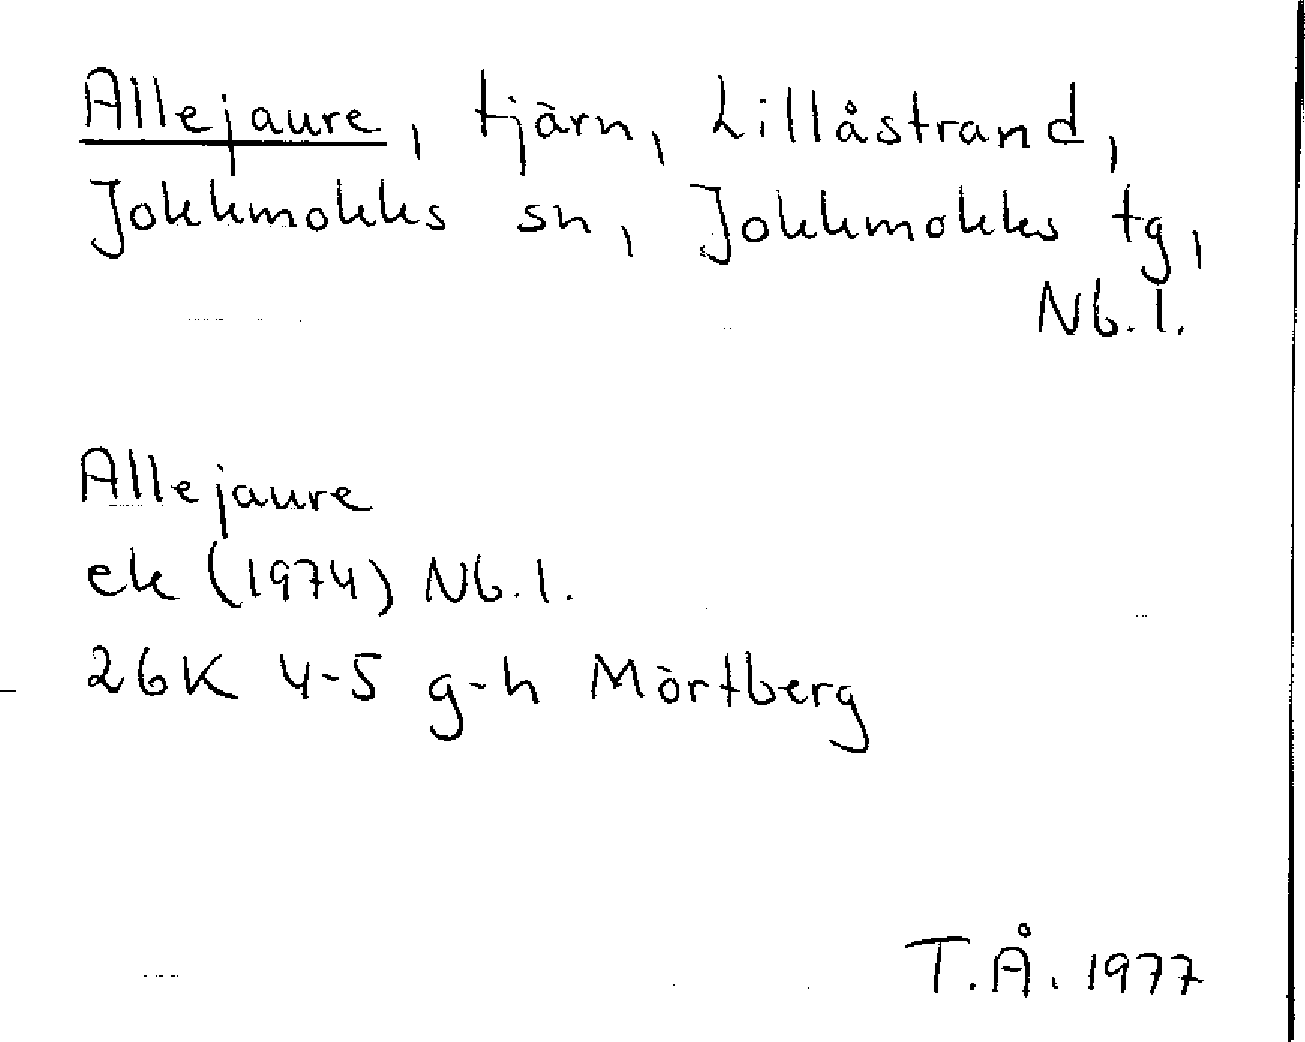 Allejaure, tjärn, Lillåstrand,
Jokkmokks sn, Jokkmokks tg,
Nb. l.
Allejaure
ek (1974) Nb. l.
26K 4-5 g-h Mörtberg
T.Å. 1977